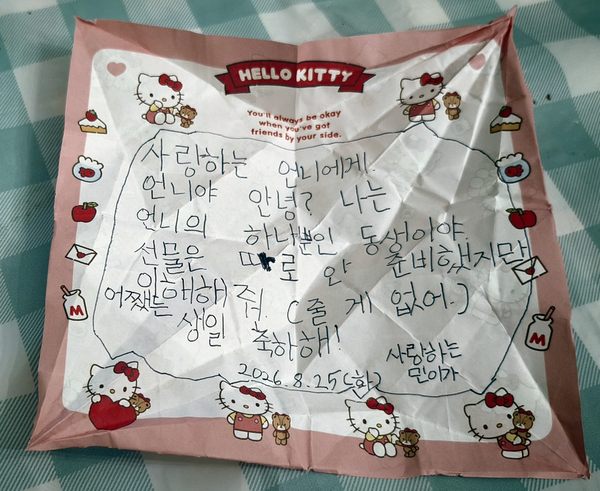 HELLO KITTY
You'll always be okay
when you've got
friends by your side.
사랑하는 언니에게.
언니야 안녕? 나는
언니의 하나뿐인 동생이야
선물은 따로 안 준비했지만
이해해 줘. (줄 게 없어.)
어쨌든 생일 축하해!
2026.8.25(화)
사랑하는
민이가
M
M